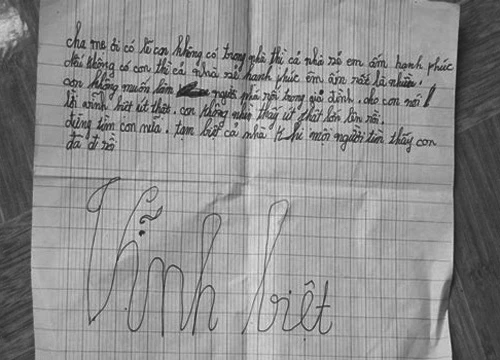 cha mẹ ơi có lẽ con không có trong nhà thì cả nhà sẽ êm ấm hạnh phúc
nếu không có con thì cả nhà sẽ hạnh phúc êm ấm rất là nhiều.
con không muốn làm người nhà rối trong gia đình. cho con nói
lời xinh út thật. con không nhìn thấy út thật lớn lên rồi.
đừng tìm con nữa. tạm biệt cả nhà khi mọi người tìm thấy con
đã đi rồi
Vĩnh biệt